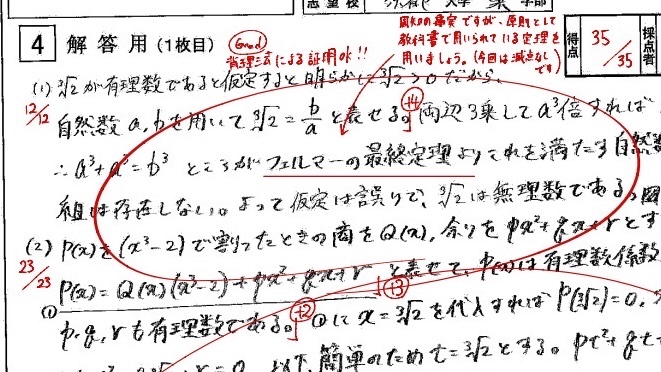 志望校 大学 学部
4 解答用(1枚目)
Good
背理法による証明ok!!
周知の事実ですが、原則として
教科書で用いられている定理を
用いましょう。(今回は減点なし
です)
得点
35/35
採点者
(1) ∛2が有理数であると仮定すると明らかに∛2>0だから、
12/12
自然数a,bを用いて∛2=b/aと表せる。両辺3乗してa³倍すれば
+4
∴a³+a³=b³ ところがフェルマーの最終定理よりこれを満たす自然数
組は存在しない。よって仮定は誤りで、∛2は無理数である。
(2) P(x)を(x³-2)で割ったときの商をQ(x),余りをpx²+qx+rとす
23/23
P(x)=Q(x)(x³-2)+px²+qx+r と表せて、P(x)は有理数係数
①
+3
p,q,rも有理数である。①にx=∛2を代入すればP(∛2)=0,
+2
=0 以下、簡単のためt=∛2とする。pt²+qt+